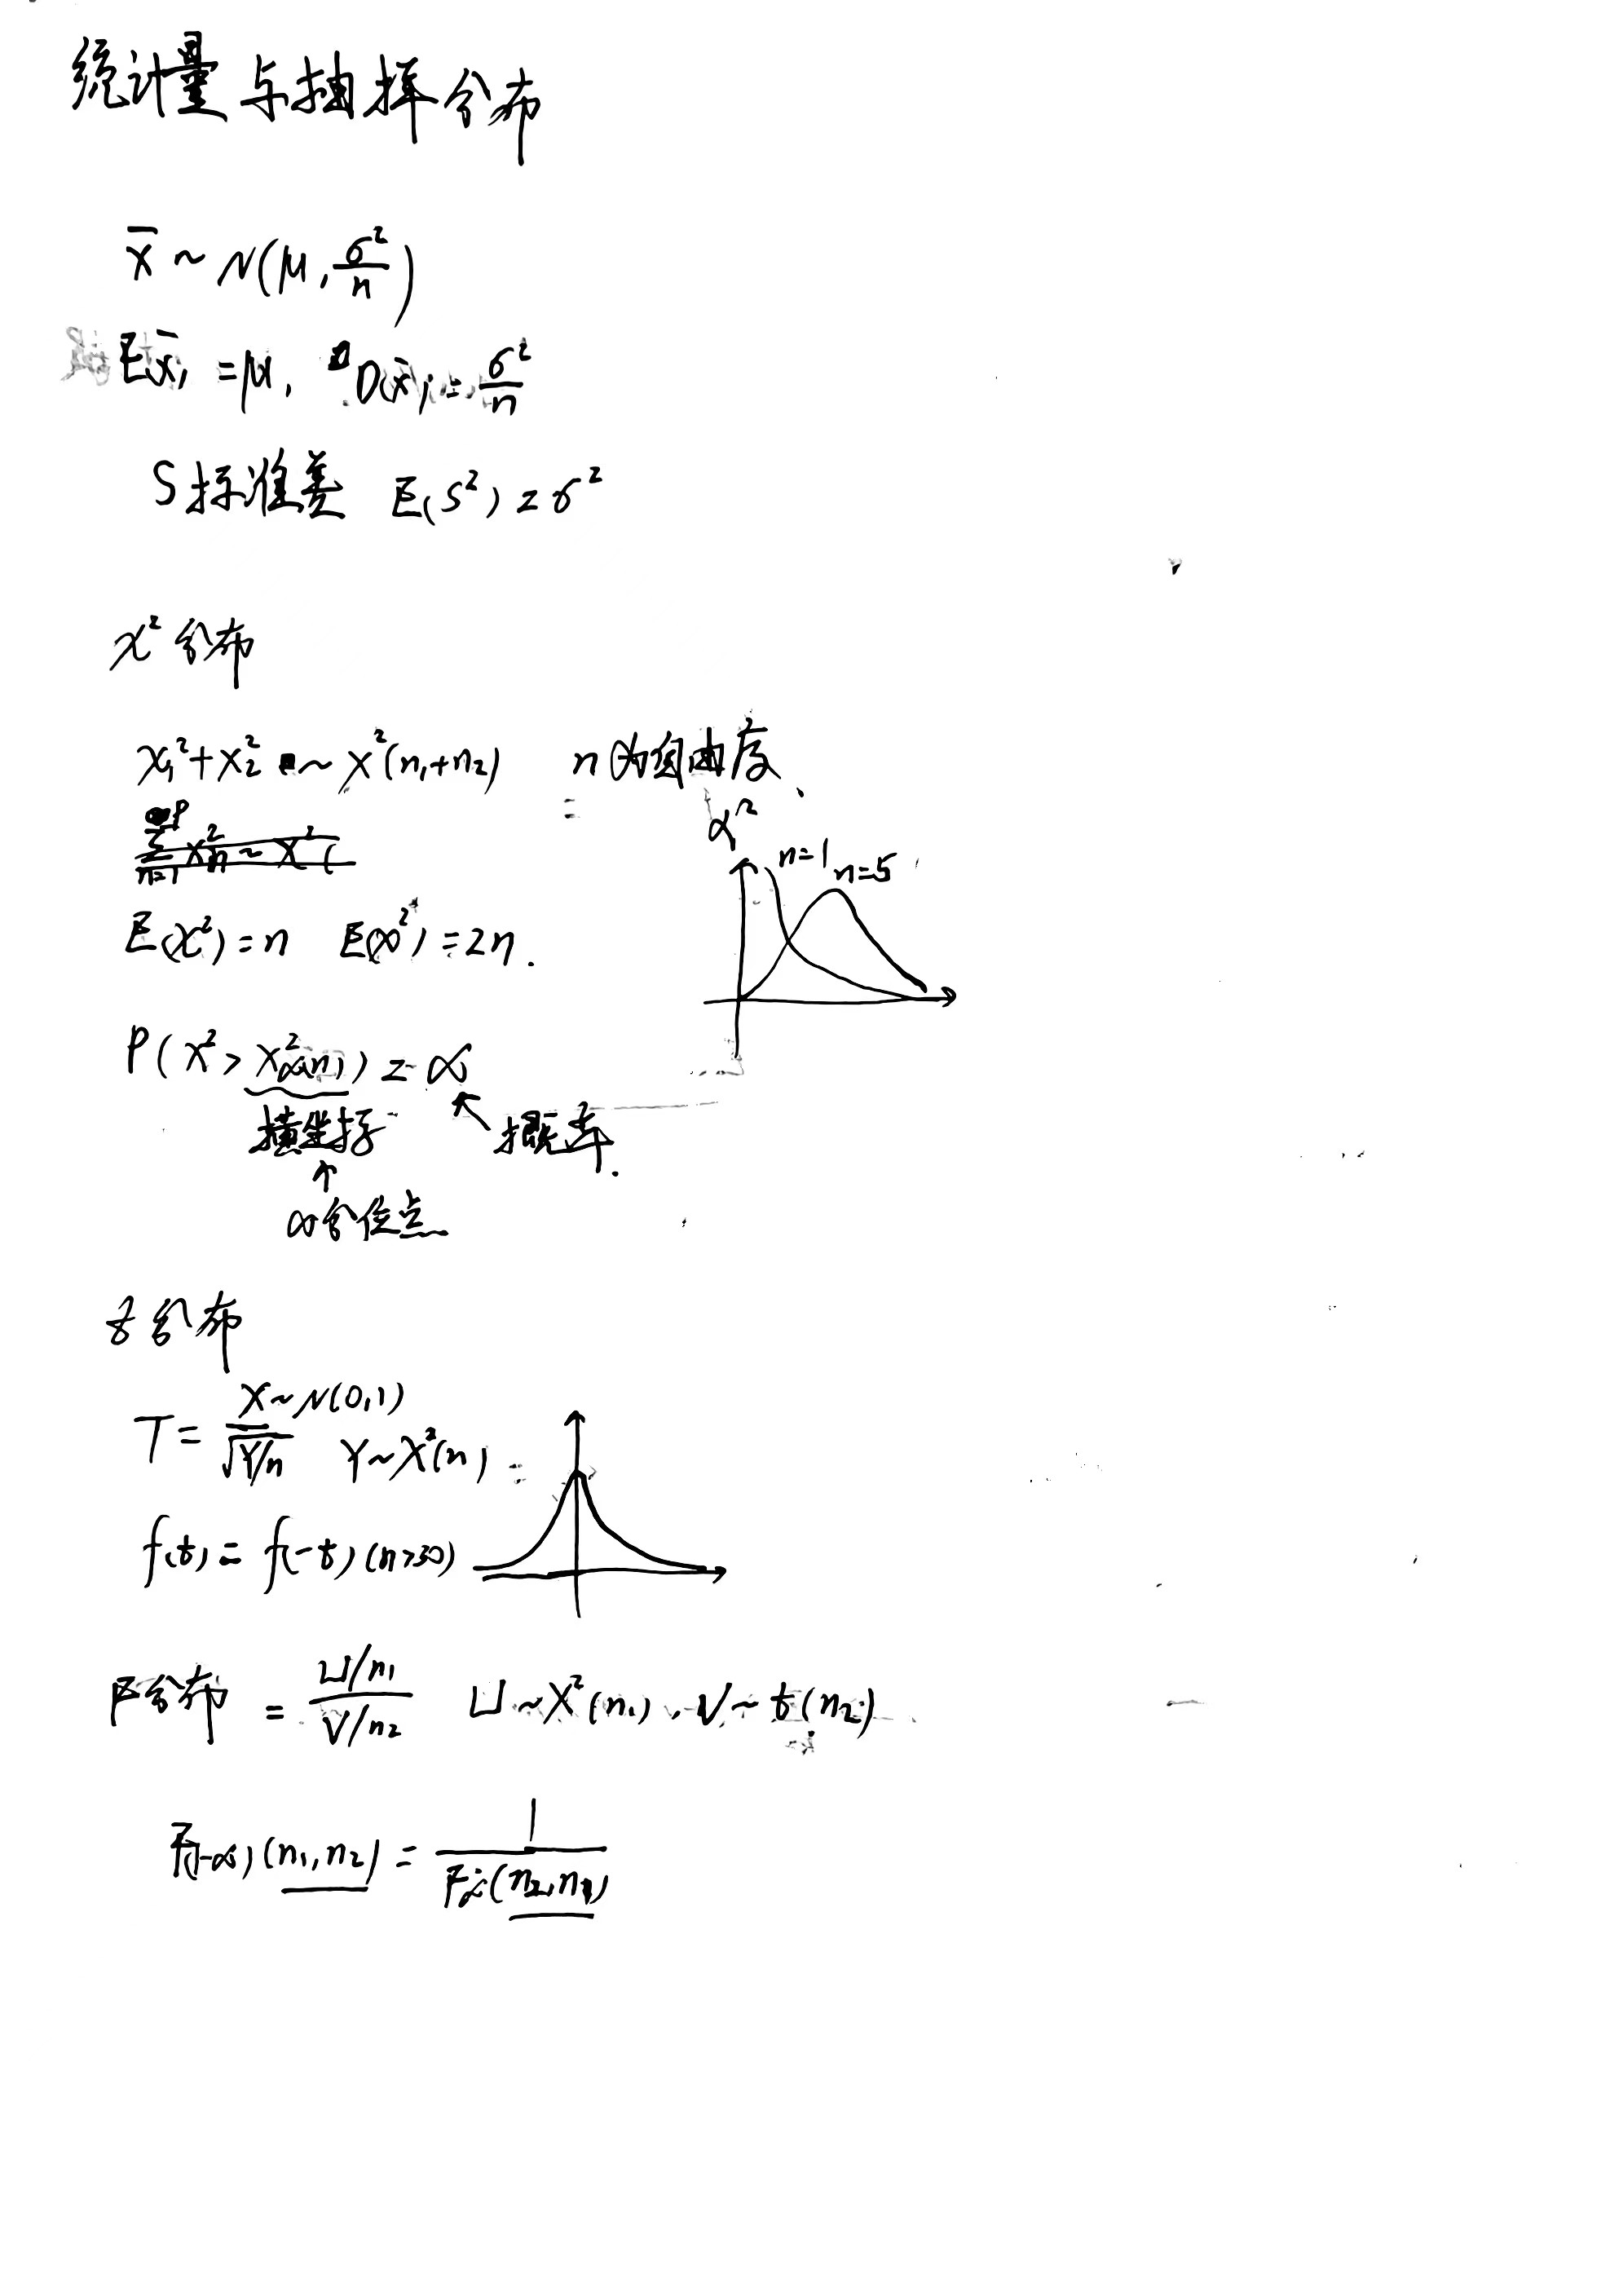 统计量与抽样分布
x̄ ~ N(μ, σ²/n)
E(x̄) = μ, D(x̄) = σ²/n
S标准差 E(S²) = σ²
χ²分布
χ₁² + χ₂² ~ χ²(n₁+n₂) n为自由度、
χ²
n=1 n=5
E(χ²) = n E(χ²) = 2n.
P(χ² > χ²α(n)) = α
横坐标 概率.
α分位点
t分布
T = X/√(Y/n) X~N(0,1)
Y~χ²(n)
f(t) = f(-t) (n>30)
F分布 = (U/n₁)/(V/n₂) U~χ²(n₁), V~t(n₂)
F(1-α)(n₁,n₂) = 1/Fα(n₂,n₁)